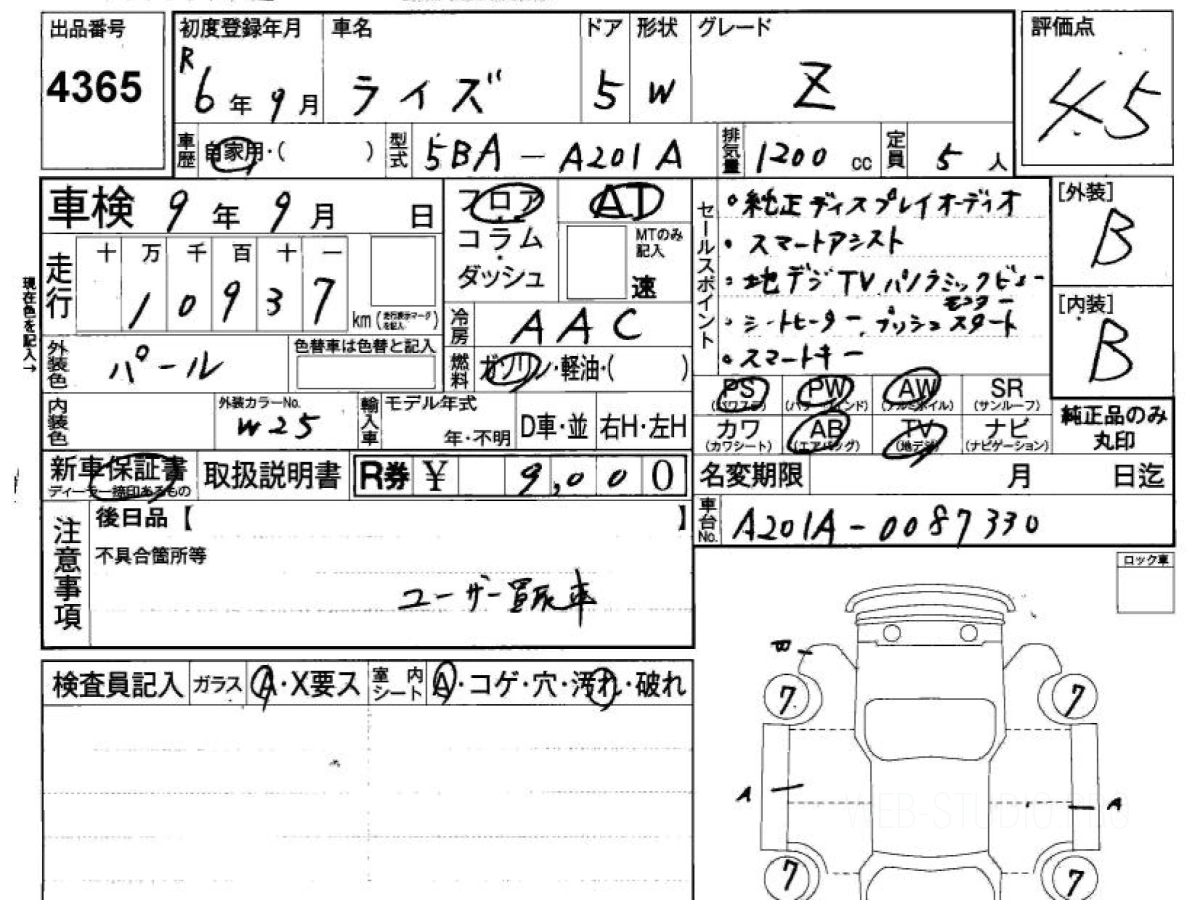 出品番号
4365
初度登録年月
R6年9月
車名
ライズ
ドア
5
形状
W
グレード
Z
評価点
4.5
車歴
自家用・( )
型式
5BA-A201A
排気量
1200 cc
定員
5人
車検 9年9月 日
走行
十万千百十一
10937
km(走行表示マークを記入)
現在色を記入→
フロア
コラム
ダッシュ
AT
MTのみ記入
速
冷房
AAC
燃料
ガソリン・軽油・( )
セールスポイント
・純正ディスプレイオーディオ
・スマートアシスト
・地デジTV パノラミックビューモニター
・シートヒーター プッシュスタート
・スマートキー
[外装]
B
[内装]
B
外装色
パール
色替車は色替と記入
内装色
外装カラーNo.
W25
輸入車
モデル年式
年・不明
D車・並
右H・左H
PS
(パワステ)
PW
(パワーウインド)
AW
(アルミホイル)
SR
(サンルーフ)
カワ
(カワシート)
AB
(エアバッグ)
TV
(地デジ)
ナビ
(ナビゲーション)
純正品のみ
丸印
新車保証書
ディーラー締印あるもの
取扱説明書
R券 ¥ 9,000
名変期限 月 日迄
車台No.
A201A-0087330
注意事項
後日品【 】
不具合箇所等
ユーザー買取車
ロック車
検査員記入
ガラス
A・X要ス
室内シート
A・コゲ・穴・汚れ・破れ
7
7
A
A
7
7
WEB-STUDIO.PRO